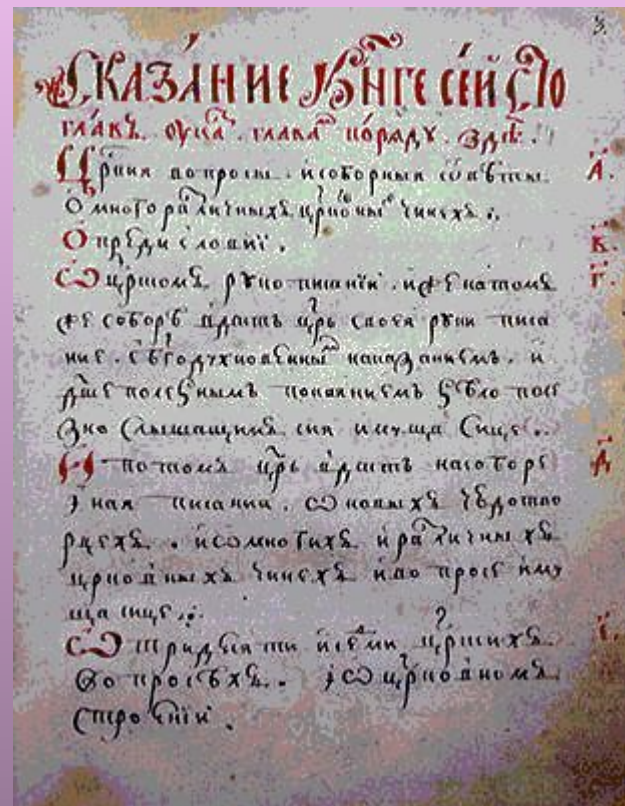 З.
Сказа́ние кни́ге се́й сто
главъ. ꙋказ. глава по́рядꙋ. здѣ.
Црския вопросы. и соборныя ѿвѣты А.
О многоразличныхъ црковны чинехъ.
О предисловиї. В.
Ѡ црскомъ рꙋкописаниї. иже на томъ Г.
же соборѣ вдасть црь своея рꙋки писа
ние. з бгодꙋхновенны наказаниемъ. и
дше полезнымъ покаяниемъ ѕѣло поле
зно слышащимъ сия имꙋща сице.
И потомъ црь вдасть на соборе Д
иная писания. ѡ новыхъ чюдотво
рцехъ. и ѡ многихъ и различныхъ
црковныхъ чинехъ и вопросе имꙋ
ща сице.
Ѡ тридесяти и седми црскихъ
вопросѣхъ. и ѡ црковномъ
строениї.